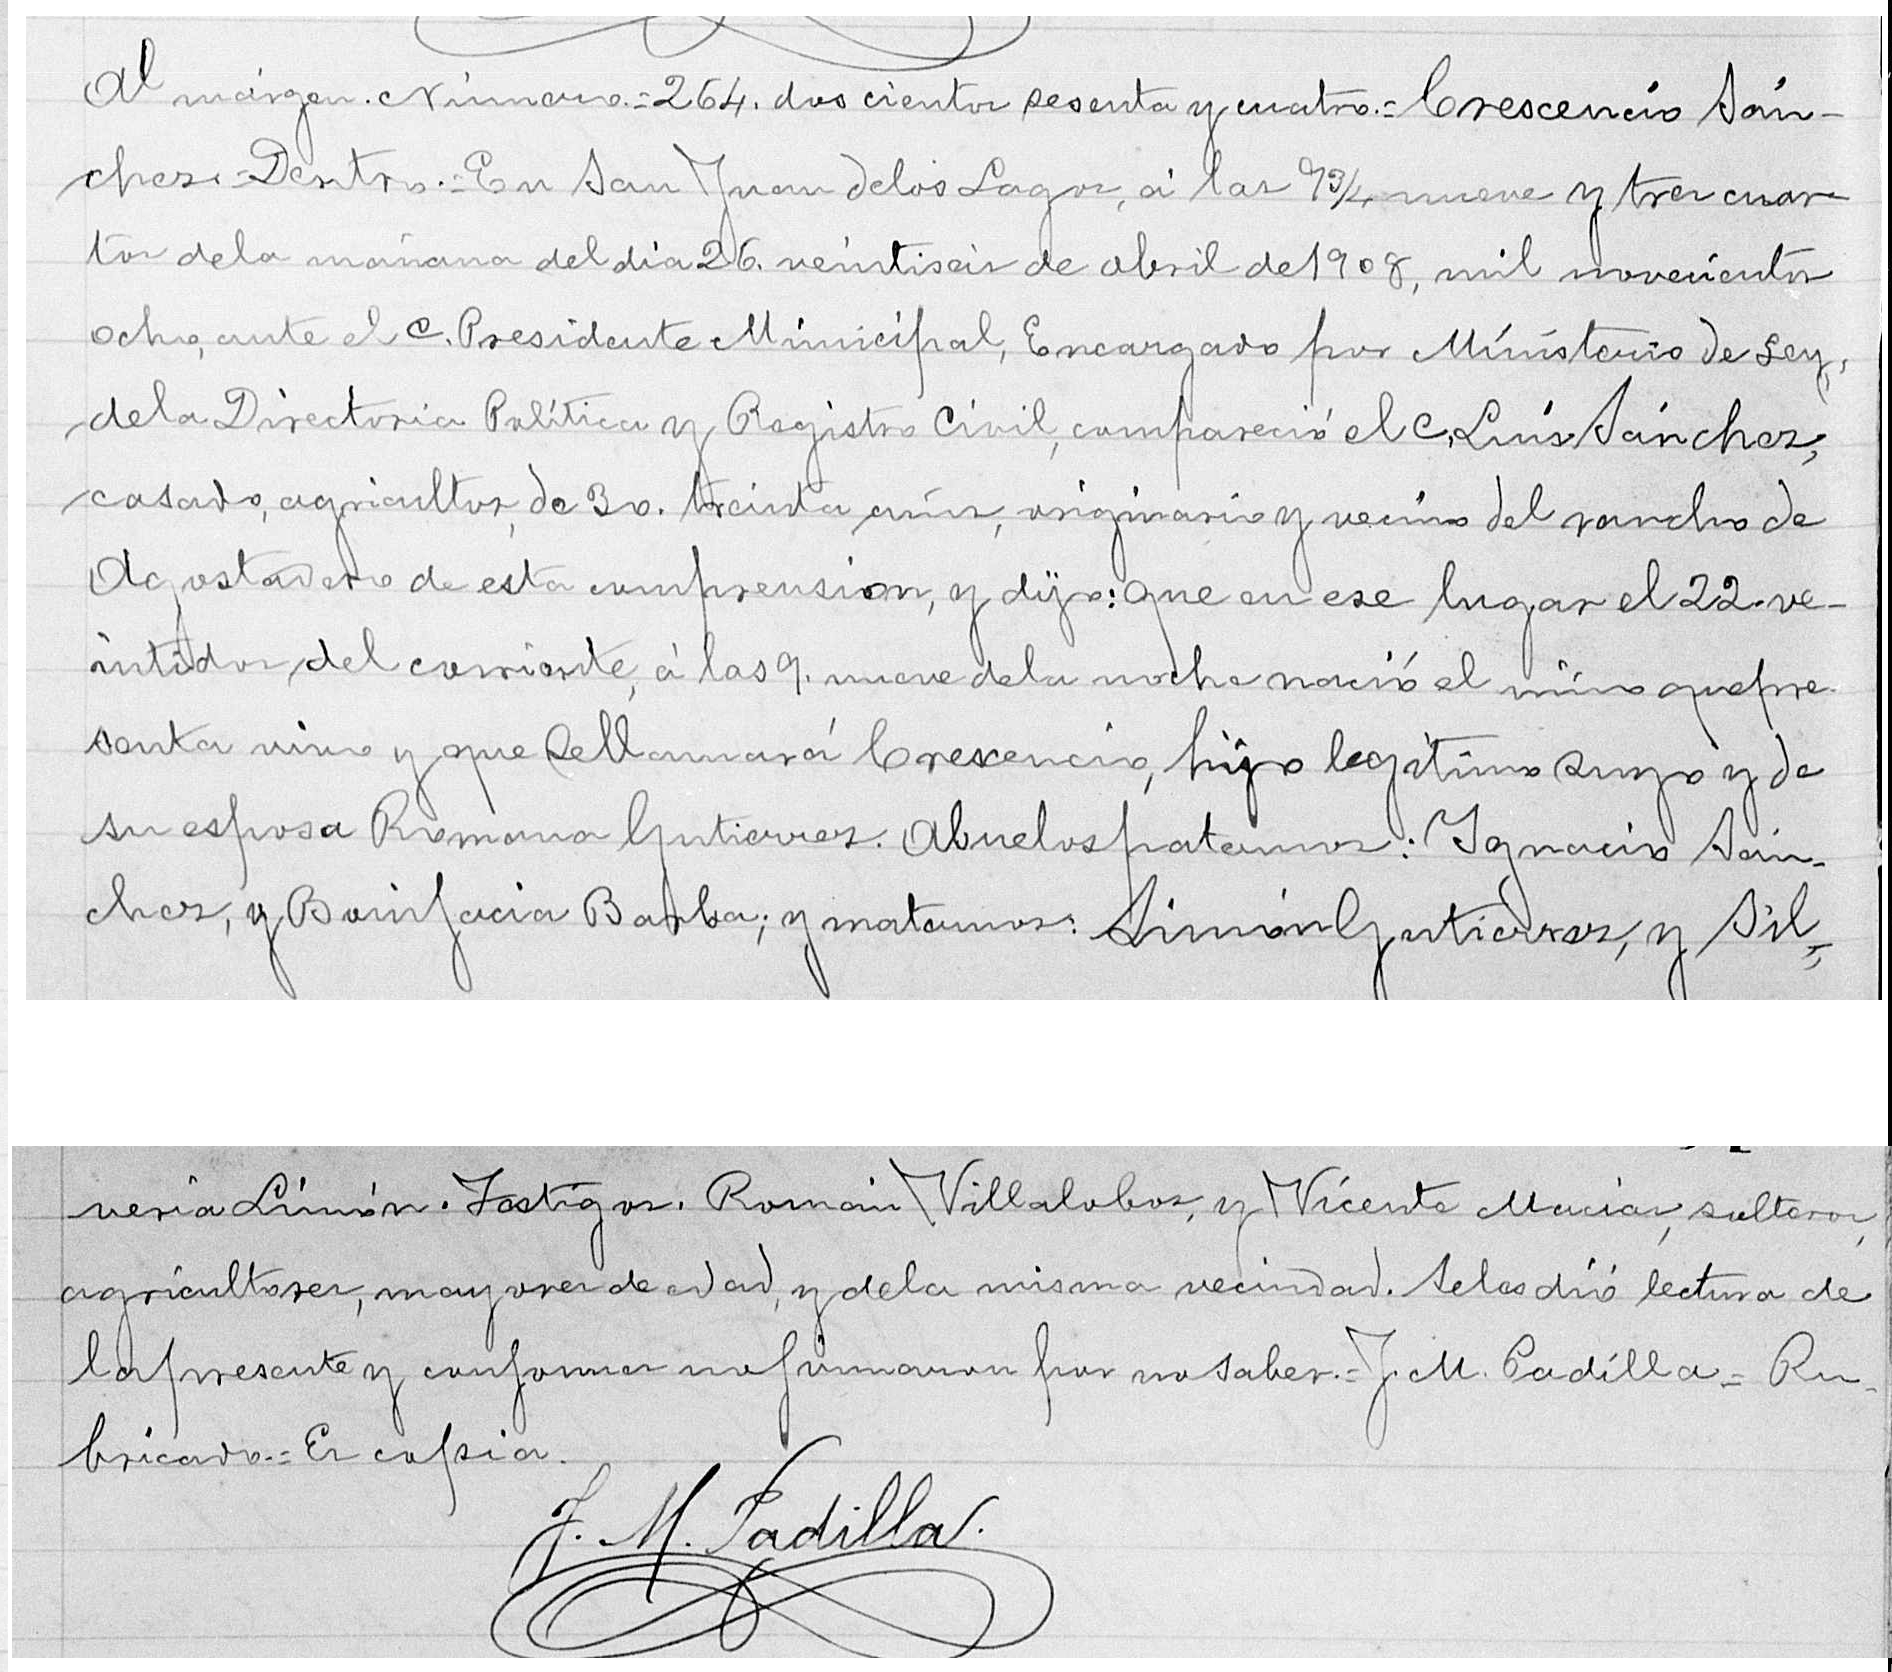 Al márgen. Número.=264. dos cientos sesenta y cuatro.= Crescencio Sán-
chez.=Dentro.=En San Juan delos Lagos, á las 9 3/4 nueve y tres cuar-
tos dela mañana del dia 26. veintiseis de abril de 1908, mil novecientos
ocho, ante el C. Presidente Municipal, Encargado por Ministerio de Ley,
dela Directoria Política y Registro Civil, compareció el C. Luis Sánchez,
casado, agricultor, de 30. treinta años, originario y vecino del rancho de
Agostadero de esta comprension, y dijo: que en ese lugar el 22. ve-
intidos, del corriente, á las 9. nueve dela noche nació el niño que pre-
senta vivo y que sellamará Crescencio, hijo legítimo suyo y de
su esposa Romana Gutierrez. Abuelos paternos: Ignacio Sán-
chez, y Bonifacia Barba; y maternos: Simón Gutierrez, y Sil=
veria Limón. Testigos. Román Villalobos, y Vicente Macias, solteros,
agricultores, mayores de edad, y dela misma vecindad. Seles dió lectura de
la presente y conformes no firmaron por no saber.=J. M. Padilla=Ru-
bricado.=Es copia.
J. M. Padilla.